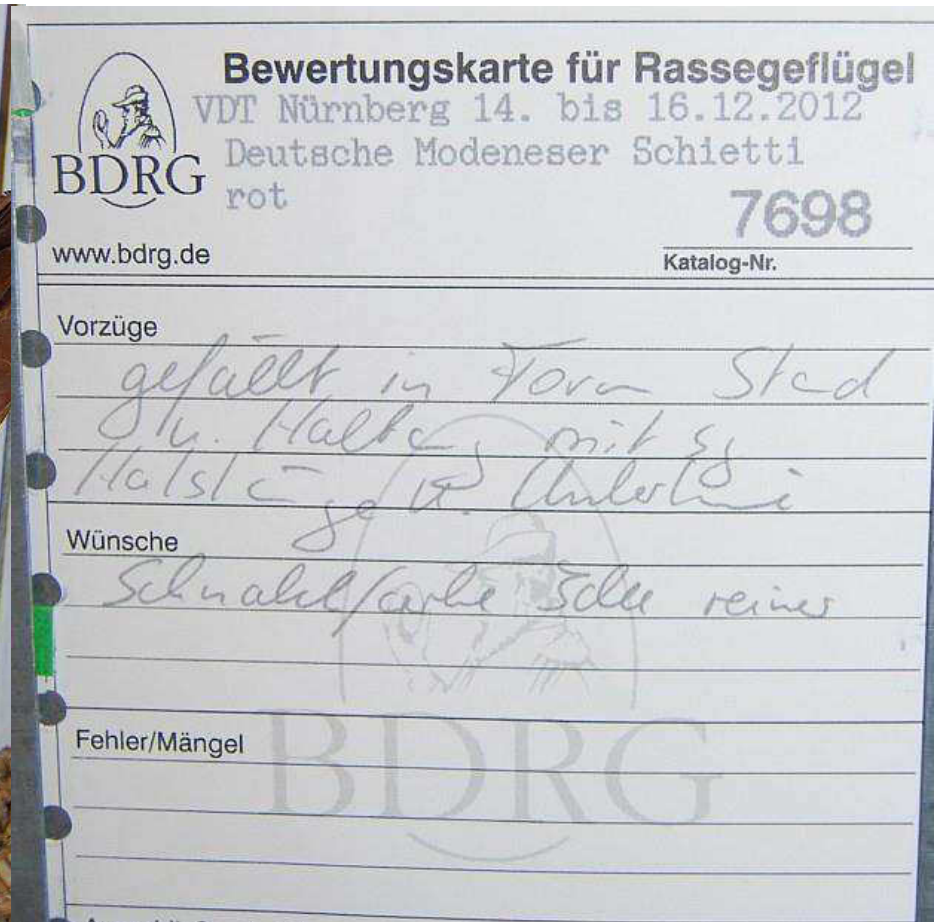 Bewertungskarte für Rassegeflügel
VDT Nürnberg 14. bis 16.12.2012
Deutsche Modeneser Schietti
rot
BDRG
7698
www.bdrg.de
Katalog-Nr.
Vorzüge
gefällt in Form Stand
u. Haltung mit sg
Halslänge u. Unterlinie
Wünsche
Schnabelfarbe reiner
Fehler/Mängel
BDRG